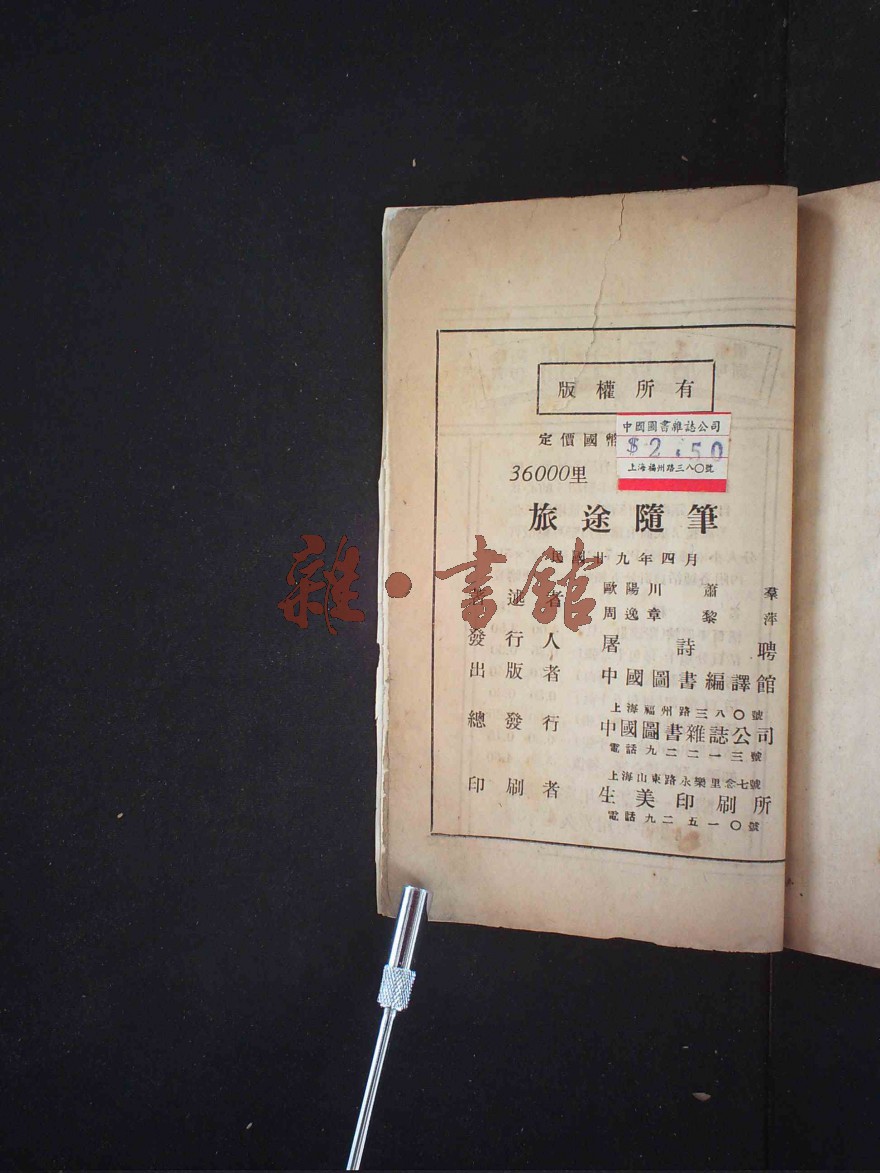 版權所有
定價國幣
中國圖書雜誌公司
$2.50
上海福州路三八〇號
36000里
旅途隨筆
民國廿九年四月
著述者 歐陽川 蕭羣
周逸章 黎萍
發行人 屠詩聘
出版者 中國圖書編譯館
上海福州路三八〇號
總發行 中國圖書雜誌公司
電話九二二一三號
上海山東路永樂里念七號
印刷者 生美印刷所
電話九二五一〇號
雜·書館